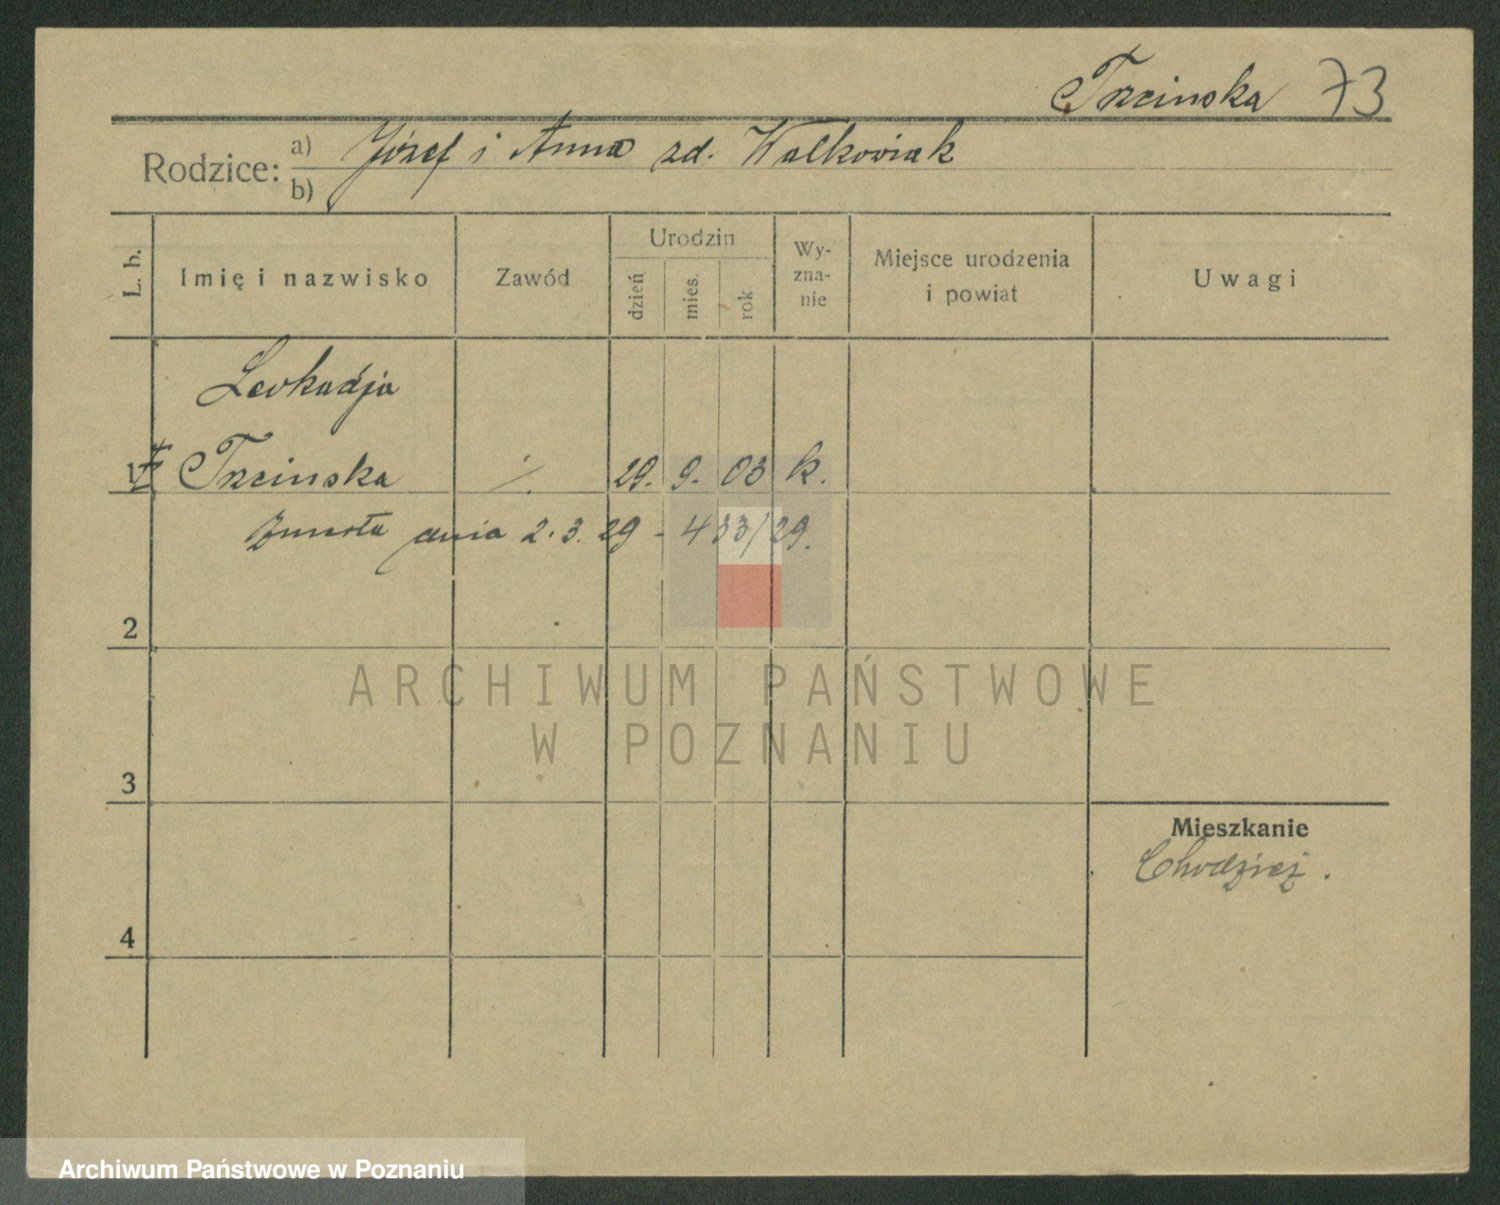 Trzcinska 73
Rodzice: a) Józef i Anna zd. Walkowiak
b)
L. b. Imię i nazwisko Zawód Urodzin dzień mies. rok Wy-zna-nie Miejsce urodzenia i powiat Uwagi
Leokadja
1 Trzcinska ./. 29. 9. 03 k.
Zmarła dnia 2.3.29 - 433/29.
2
ARCHIWUM PAŃSTWOWE
W POZNANIU
3
Mieszkanie
Chodzież.
4
Archiwum Państwowe w Poznaniu